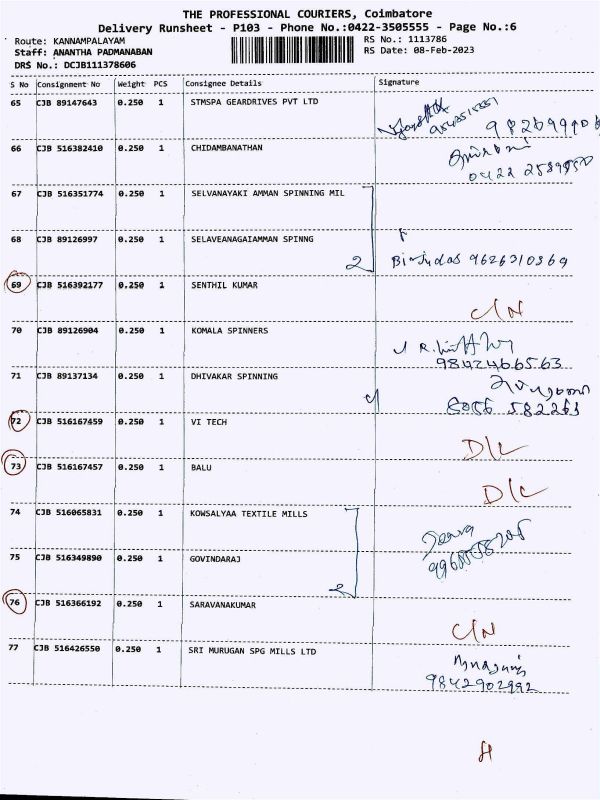 THE PROFESSIONAL COURIERS, Coimbatore
Delivery Runsheet - P103 - Phone No.:0422-3505555 - Page No.:6
Route: KANNAMPALAYAM
RS No.: 1113786
Staff: ANANTHA PADMANABAN
RS Date: 08-Feb-2023
DRS No.: DCJB111378606
S No Consignment No Weight PCS Consignee Details Signature
65 CJB 89147643 0.250 1 STMSPA GEARDRIVES PVT LTD
66 CJB 516382410 0.250 1 CHIDAMBANATHAN
0422 2589950
67 CJB 516351774 0.250 1 SELVANAYAKI AMMAN SPINNING MIL
68 CJB 89126997 0.250 1 SELAVEANAGAIAMMAN SPINNG
2 9626310369
69 CJB 516392177 0.250 1 SENTHIL KUMAR
C/N
70 CJB 89126904 0.250 1 KOMALA SPINNERS
9842466563
71 CJB 89137134 0.250 1 DHIVAKAR SPINNING
8056 582263
72 CJB 516167459 0.250 1 VI TECH
D/L
73 CJB 516167457 0.250 1 BALU
D/L
74 CJB 516065831 0.250 1 KOWSALYAA TEXTILE MILLS
75 CJB 516349890 0.250 1 GOVINDARAJ
2
76 CJB 516366192 0.250 1 SARAVANAKUMAR
C/N
77 CJB 516426550 0.250 1 SRI MURUGAN SPG MILLS LTD
9842902992